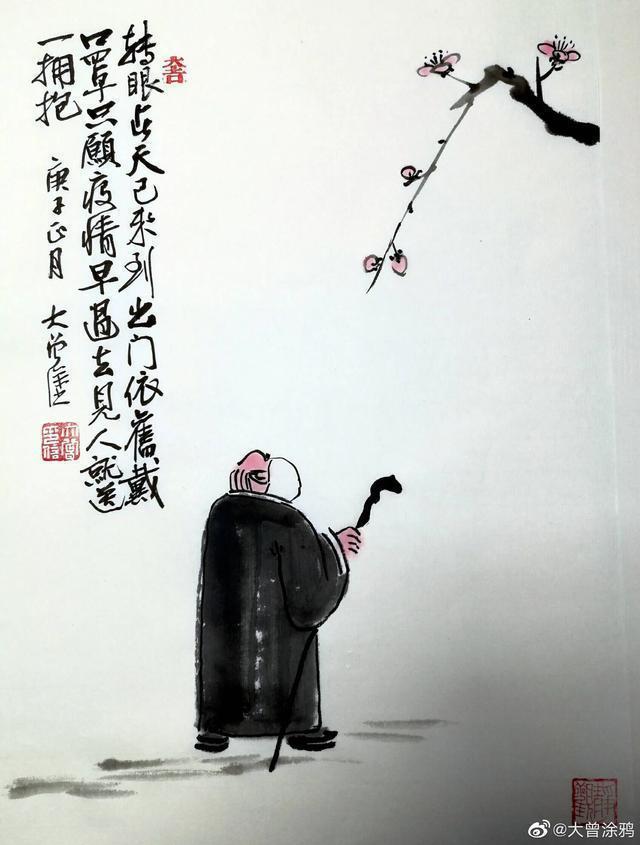 转眼春天已来到出门依舊戴
口罩只願疫情早過去見人就送
一拥抱
庚子正月 大曾
@大曾涂鸦